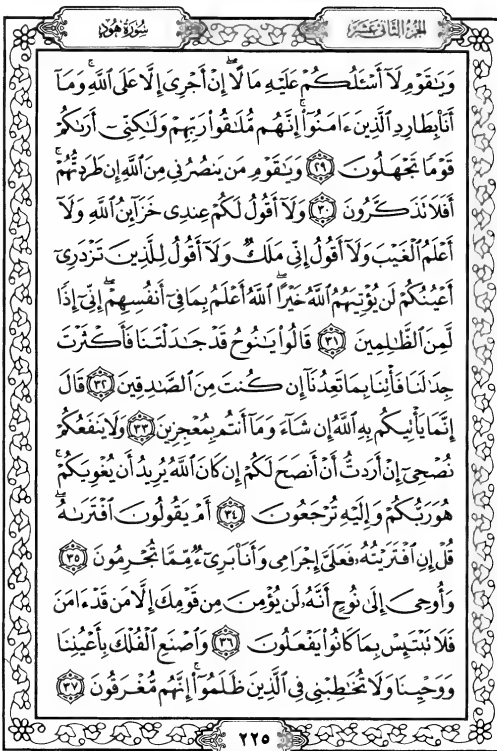 سُورَةُ هُودٍ
الجُزءُ الثَّانِي عَشَرَ
وَيَٰقَوْمِ لَآ أَسْـَٔلُكُمْ عَلَيْهِ مَالًا ۖ إِنْ أَجْرِىَ إِلَّا عَلَى ٱللَّهِ ۚ وَمَآ
أَنَا۠ بِطَارِدِ ٱلَّذِينَ ءَامَنُوٓا۟ ۚ إِنَّهُم مُّلَٰقُوا۟ رَبِّهِمْ وَلَٰكِنِّىٓ أَرَىٰكُمْ
قَوْمًا تَجْهَلُونَ ٢٩ وَيَٰقَوْمِ مَن يَنصُرُنِى مِنَ ٱللَّهِ إِن طَرَدتُّهُمْ ۚ
أَفَلَا تَذَكَّرُونَ ٣٠ وَلَآ أَقُولُ لَكُمْ عِندِى خَزَآئِنُ ٱللَّهِ وَلَآ
أَعْلَمُ ٱلْغَيْبَ وَلَآ أَقُولُ إِنِّى مَلَكٌ وَلَآ أَقُولُ لِلَّذِينَ تَزْدَرِىٓ
أَعْيُنُكُمْ لَن يُؤْتِيَهُمُ ٱللَّهُ خَيْرًا ۖ ٱللَّهُ أَعْلَمُ بِمَا فِىٓ أَنفُسِهِمْ ۖ إِنِّىٓ إِذًا
لَّمِنَ ٱلظَّٰلِمِينَ ٣١ قَالُوا۟ يَٰنُوحُ قَدْ جَٰدَلْتَنَا فَأَكْثَرْتَ
جِدَٰلَنَا فَأْتِنَا بِمَا تَعِدُنَآ إِن كُنتَ مِنَ ٱلصَّٰدِقِينَ ٣٢ قَالَ
إِنَّمَا يَأْتِيكُم بِهِ ٱللَّهُ إِن شَآءَ وَمَآ أَنتُم بِمُعْجِزِينَ ٣٣ وَلَا يَنفَعُكُمْ
نُصْحِىٓ إِنْ أَرَدتُّ أَنْ أَنصَحَ لَكُمْ إِن كَانَ ٱللَّهُ يُرِيدُ أَن يُغْوِيَكُمْ ۚ
هُوَ رَبُّكُمْ وَإِلَيْهِ تُرْجَعُونَ ٣٤ أَمْ يَقُولُونَ ٱفْتَرَىٰهُ ۖ
قُلْ إِنِ ٱفْتَرَيْتُهُۥ فَعَلَىَّ إِجْرَامِى وَأَنَا۠ بَرِىٓءٌ مِّمَّا تُجْرِمُونَ ٣٥
وَأُوحِىَ إِلَىٰ نُوحٍ أَنَّهُۥ لَن يُؤْمِنَ مِن قَوْمِكَ إِلَّا مَن قَدْ ءَامَنَ
فَلَا تَبْتَئِسْ بِمَا كَانُوا۟ يَفْعَلُونَ ٣٦ وَٱصْنَعِ ٱلْفُلْكَ بِأَعْيُنِنَا
وَوَحْيِنَا وَلَا تُخَٰطِبْنِى فِى ٱلَّذِينَ ظَلَمُوٓا۟ ۚ إِنَّهُم مُّغْرَقُونَ ٣٧
٢٢٥